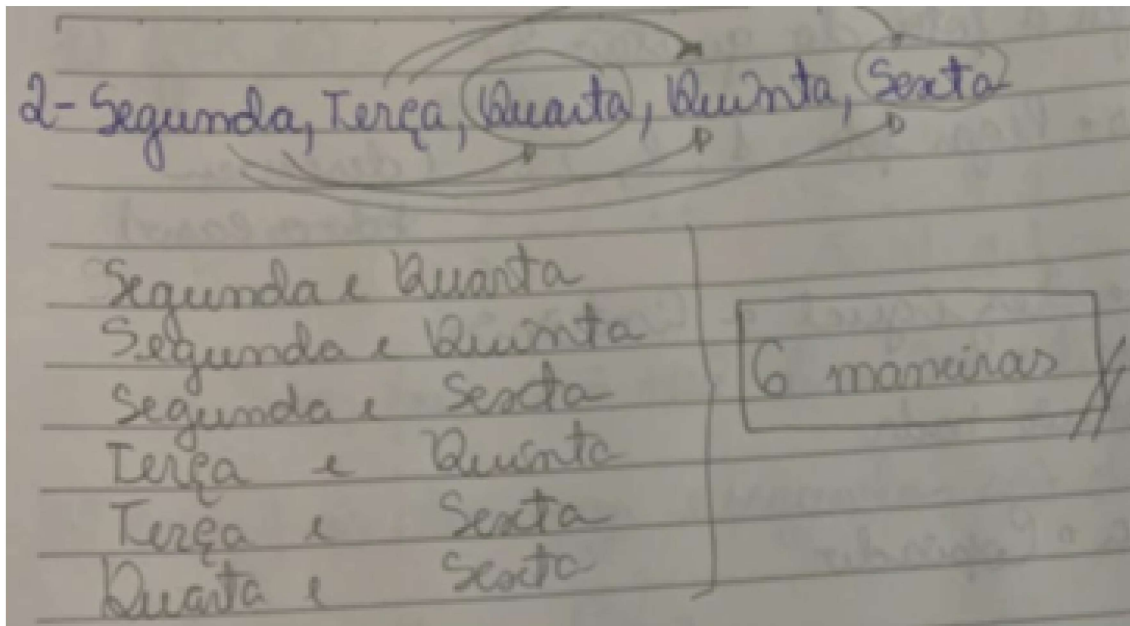 2- Segunda, Terça, Quarta, Quinta, Sexta
Segunda e Quarta
Segunda e Quinta
Segunda e Sexta
Terça e Quinta
Terça e Sexta
Quarta e Sexta
6 maneiras